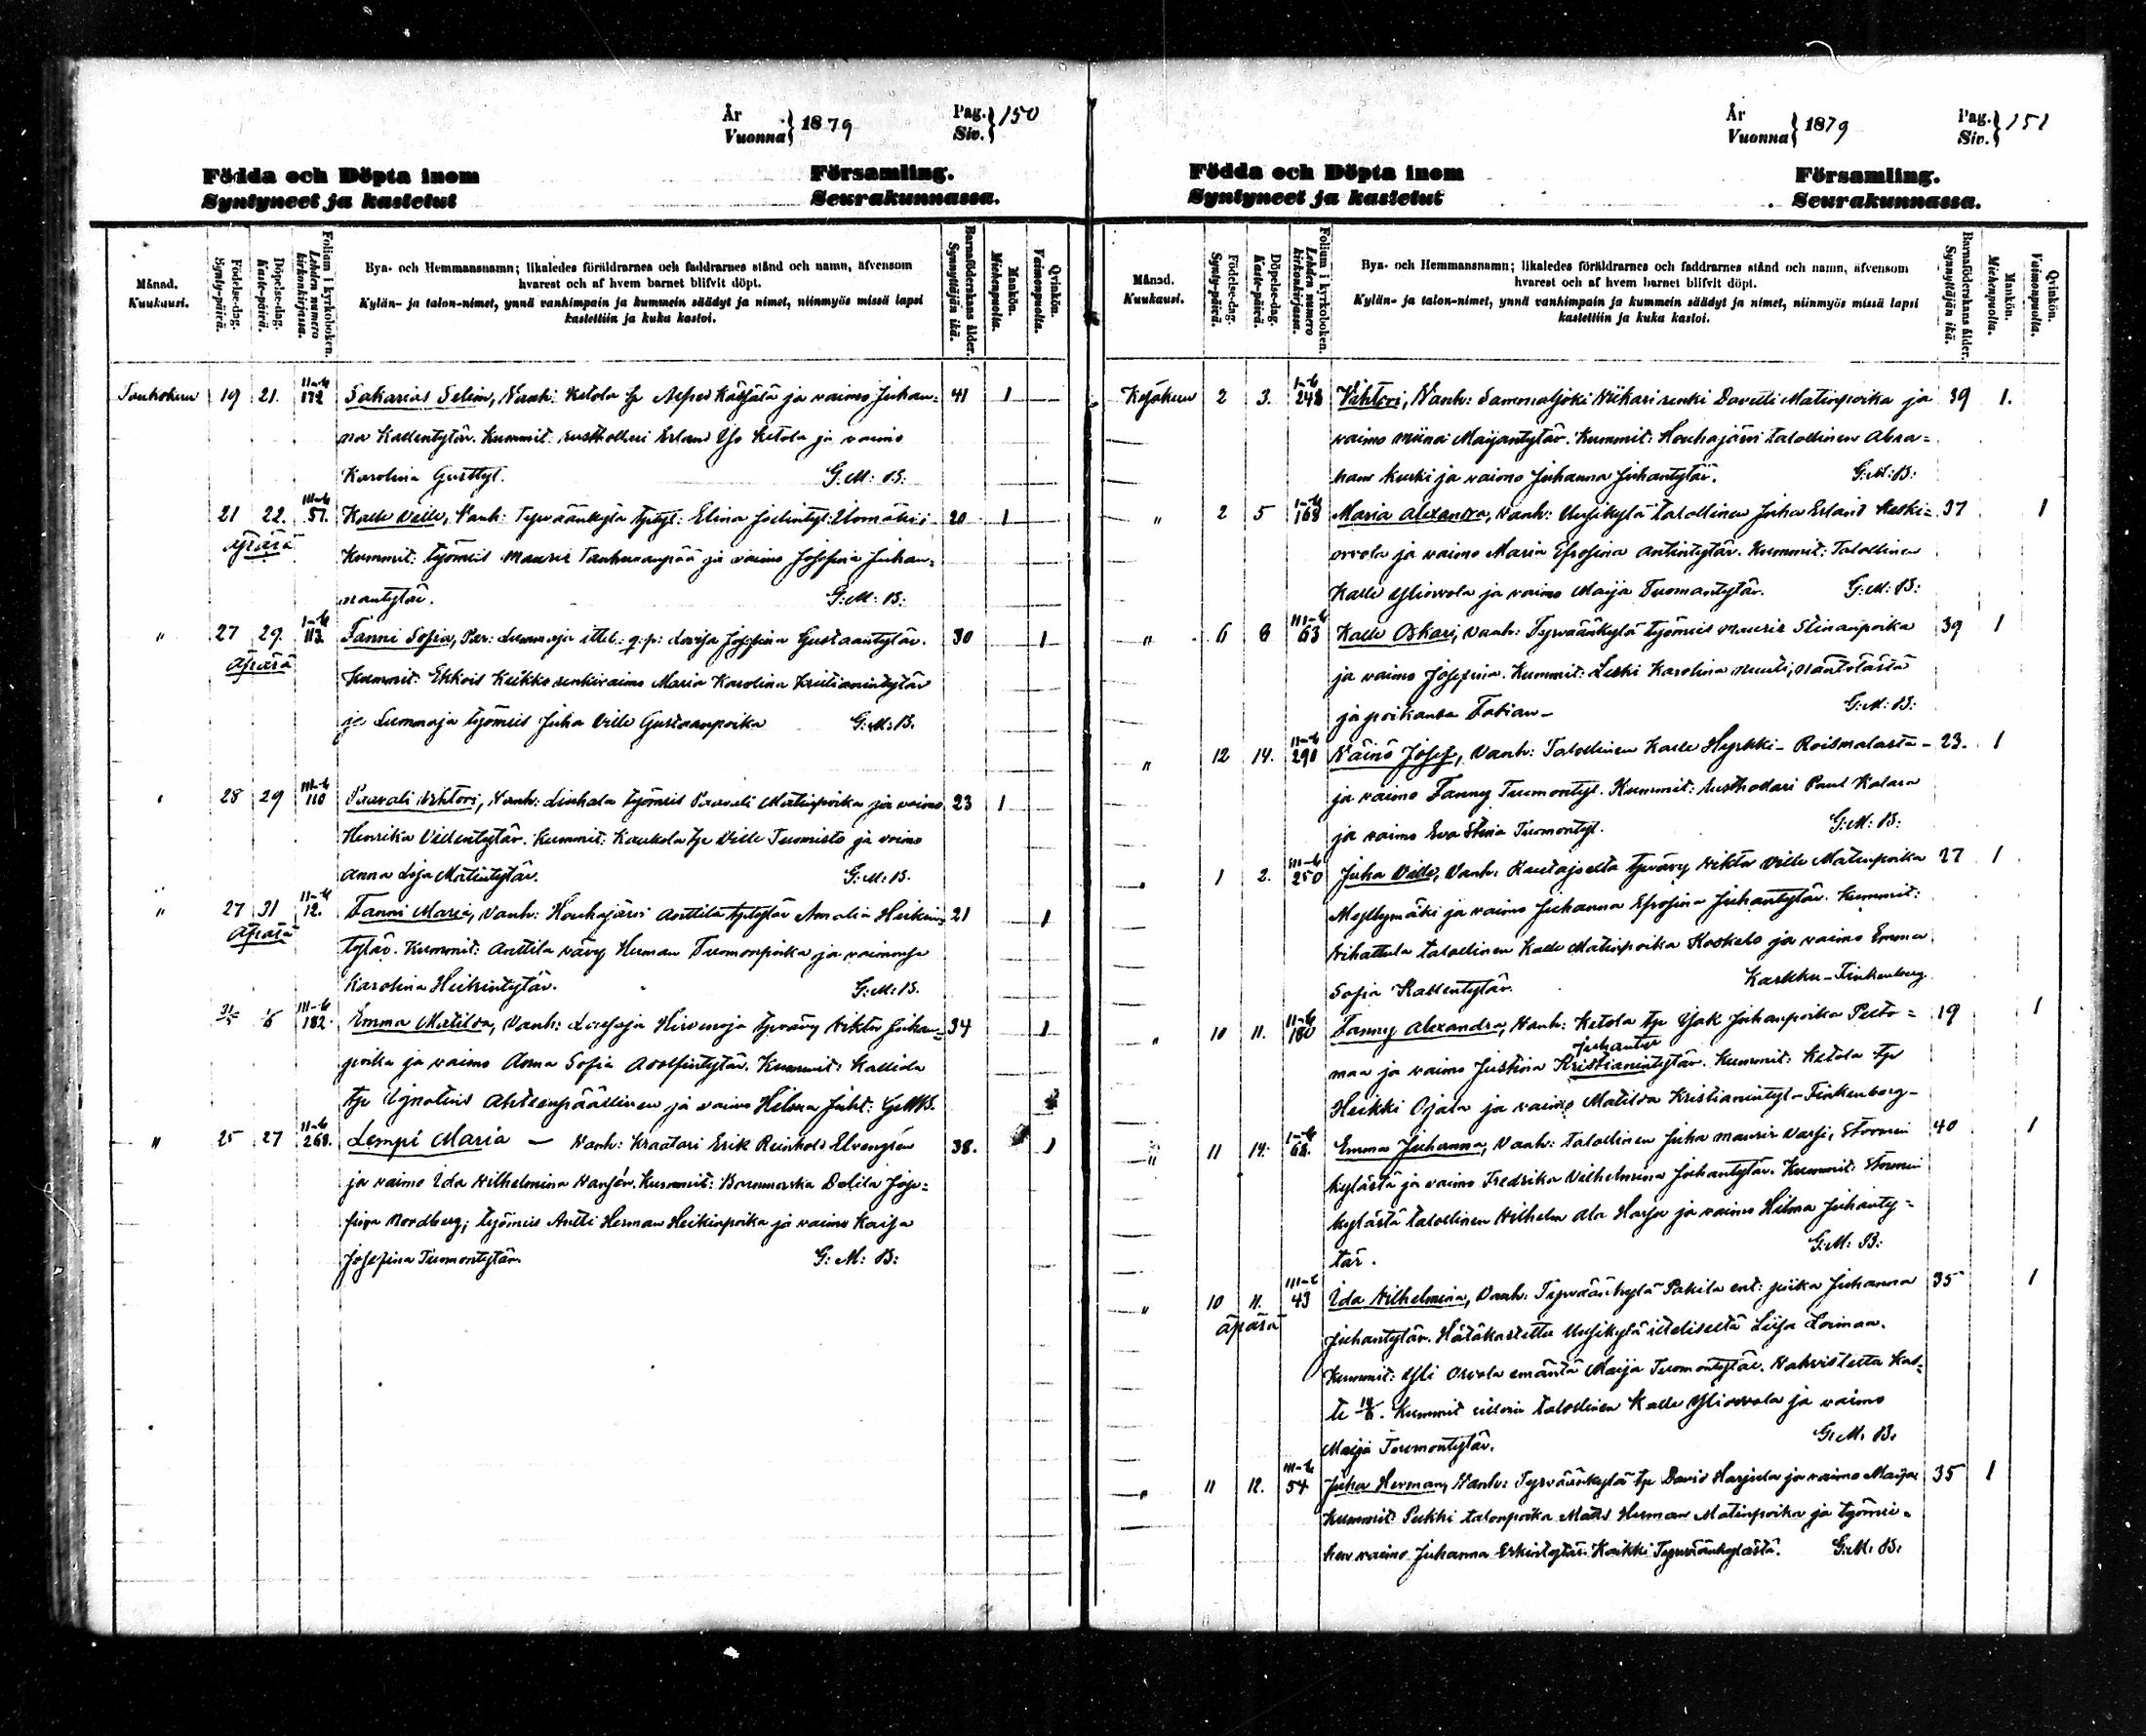 År
Vuonna } 1879
Pag.
Siv. } 150
Födda och Döpta inom Församling.
Syntyneet ja kastetut Seurakunnassa.
Månad.
Kuukausi.
Födelse-dag.
Synty-päivä.
Döpelse-dag.
Kaste-päivä.
Folium i kyrkoboken.
Lehden numero kirkonkirjassa.
Bya- och Hemmansnamn; likaledes föräldrarnes och faddrarnes stånd och namn, äfvensom
hvarest och af hvem barnet blifvit döpt.
Kylän- ja talon-nimet, ynnä vanhimpain ja kummein säädyt ja nimet, niinmyös missä lapsi
kastettiin ja kuka kastoi.
Barnaföderskans ålder.
Synnyttäjän ikä.
Mankön.
Miehenpuolta.
Qvinkön.
Vaimonpuolta.
Toukokuu 19 21. II-b 172 Sakarias Selim, Vanh: Ketola tp Alfred ja vaimo Juhan= 41 1
na Kallentytär. Kummit: rusthollari Erland Yso Ketola ja vaimo
Karolina Gusttyt. G: M: B:
21 22. III-b 57. Kalle Ville, Vanh: Tyrväänkylä Elina 20 1
äpärä Kummit: työmies Mauris ja vaimo Josefina Juhan=
nantytär. G: M: B:
" 27 29. I-b 113. Fanni Sofia, Lovisa Josefina Gustaantytär. 30 1
äpärä Kummit: Ekkois Keikko renkivaimo Maria Karolina Kristianintytär
ja Lummaja työmies Juha Ville Gustaanpoika G: M: B.
" 28 29 III-b 110 Paavali Vihtori, Vanh: Liuhala työmies Paavali Matinpoika ja vaimo 23 1
Henrika Villentytär. Kummit: Kaukola tp Ville Tuomisto ja vaimo
Anna Liisa Matintytär. G: M: B.
" 27 31 II-b 12. Fanni Maria, Vanh: Houhajärvi Anttila Amalia Heikin= 21 1
äpärä tytär. Kummit: Anttila vävy Herman Tuomonpoika ja vaimonsa
Karolina Heikintytär. G: M: B.
31/5 1/6 III-b 182. Emma Matilda, Vanh: Hirvenoja Viktor Juhan= 34 1
poika ja vaimo Anna Sofia Adolfintytär. Kummit: Kallila
tp Ignatius ja vaimo Hilma Juht: GMB.
" 25 27 II-b 268. Lempi Maria — Vanh: Kraatari Erik Reinhold Elvengrén 38. 1
ja vaimo Ida Vilhelmina Hansén. Kummit: Barnmorska Delila Jose=
fina Nordberg; työmies Antti Herman Heikinpoika ja vaimo Kaisa
Josefina Tuomontytär. G: M: B:
År
Vuonna } 1879
Pag.
Siv. } 151
Födda och Döpta inom Församling.
Syntyneet ja kastetut Seurakunnassa.
Månad.
Kuukausi.
Födelse-dag.
Synty-päivä.
Döpelse-dag.
Kaste-päivä.
Folium i kyrkoboken.
Lehden numero kirkonkirjassa.
Bya- och Hemmansnamn; likaledes föräldrarnes och faddrarnes stånd och namn, äfvensom
hvarest och af hvem barnet blifvit döpt.
Kylän- ja talon-nimet, ynnä vanhimpain ja kummein säädyt ja nimet, niinmyös missä lapsi
kastettiin ja kuka kastoi.
Barnaföderskans ålder.
Synnyttäjän ikä.
Mankön.
Miehenpuolta.
Qvinkön.
Vaimonpuolta.
Kesäkuu 2 3. I-b 248 Vihtori, Vanh: Sammaljoki Niikari renki Davetti Matinpoika ja 39 1.
vaimo Miina Maijantytär. Kummit: Houhajärvi talollinen Abra=
ham Kurki ja vaimo Juhanna Juhantytär. G: M: B:
" 2 5 I-b 168 Maria Alexandra, Vanh: Uusikylä talollinen Juha Erland Keski= 37 1
orvola ja vaimo Maria Efrosina Antintytär. Kummit: Talollinen
Kalle Yliorvola ja vaimo Maija Tuomantytär. G: M: B:
" 6 8 III-b 63 Kalle Oskari, Vanh: Tyrväänkylä työmies Mauris Stinanpoika 39 1
ja vaimo Josefina. Kummit: Leski Karolina
ja poikansa Fabian— G: M: B:
" 12 14. II-b 290 Väinö Josef, Vanh: Talollinen Kalle Hyrkki- Roismalasta— 23. 1
ja vaimo Fanny Tuomontyt. Kummit: Rusthollari Paul Kalara
ja vaimo Eva Stina Tuomontyt. G: M: B:
" 1 2. III-b 250 Juha Ville, Vanh: Rautajoelta Viktor Ville Matinpoika 27 1
Myllymäki ja vaimo Juhanna Efrosina Juhantytär. Kummit:
Vihattula talollinen Kalle Matinpoika Koskelo ja vaimo Emma
Sofia Kallentytär. Karkku-Finkenberg
" 10 11. II-b 180 Fanny Alexandra, Vanh: Ketola tp Isak Juhanpoika Pelto= 19 1
Juhantyt
maa ja vaimo Justina Kristianintytär. Kummit: Ketola tp
Heikki Ojala ja vaimo Matilda Kristianintyt-Finkenberg—
" 11 14. I-b 68. Emma Juhanna, Vanh: talollinen Juha Mauris Stormin 40 1
kylästä ja vaimo Fredrika Vilhelmina Juhantytär. Kummit: Stormin
kylästä talollinen Vilhelm Ala ja vaimo Hilma Juhanty=
tär. G: M: B:
" 10 11. III-b 43 Ida Vilhelmina, Vanh: Tyrväänkylä Pakila ent: piika Juhanna 35 1
äpärä Juhantytär. Hätäkastettu Uusikylä itselliseltä Liisa Loimaa.
Kummit: Yli Orvola emäntä Maija Tuomontytär. Vahvistettu kas=
te 14/6. Kummit silloin talollinen Kalle Yliorvola ja vaimo
Maija Tuomontytär. G: M: B:
" 11 12. III-b 54 Juha Herman, Vanh: Tyrväänkylä tp David Harjula ja vaimo Maija 35 1
Kummit: Pukki talonpoika Matts Herman Matinpoika ja työmie=
hen vaimo Juhanna Erkintytär. Kaikki Tyrväänkylästä. G: M: B: